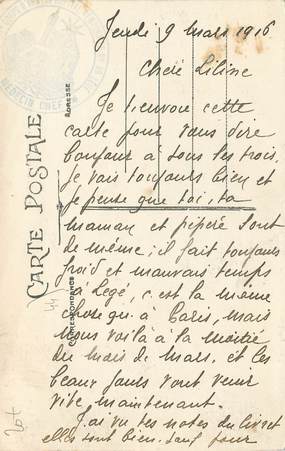 Jeudi 9 mars 1916
Chère Liline
Je t'envoie cette
carte pour vous dire
bonjour à tous les trois.
Je vais toujours bien et
je pense que toi, ta
maman et pépère sont
de même; il fait toujours
froid et mauvais temps
à Legé, c'est la même
chose qu'à Paris, mais
nous voilà à la moitié
du mois de mars, et les
beaux jours vont venir
vite, maintenant.
J'ai vu tes notes du livret
elles sont bien sauf pour
CARTE POSTALE
ADRESSE
CORRESPONDANCE
MÉDECIN CHEF